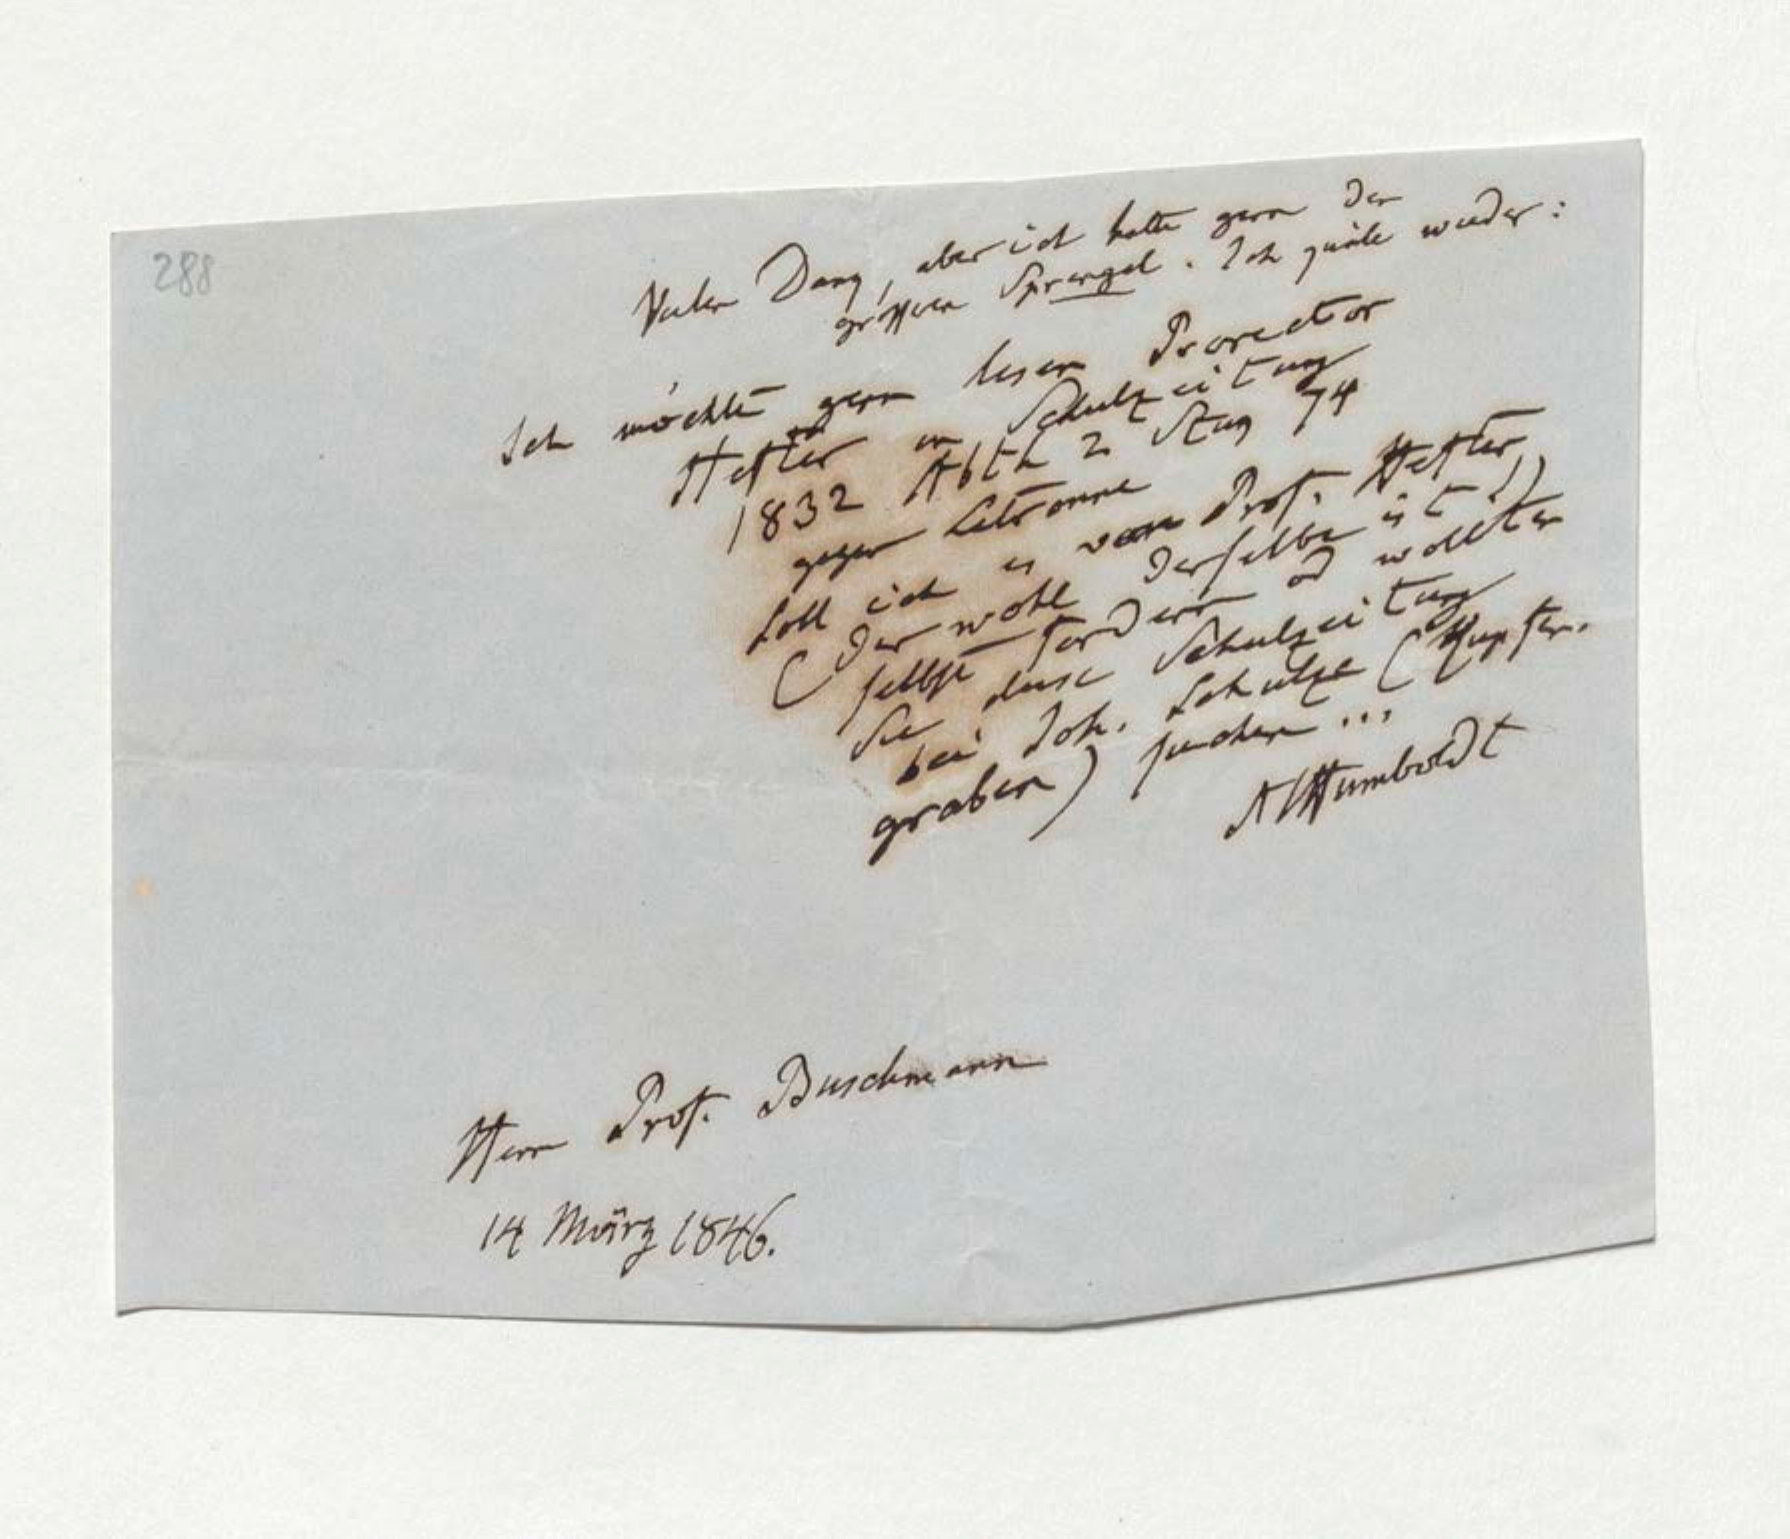 288
Vielen Dank, aber ich hatte gern den
grösseren Sprengel. Ich quäle wieder:
Ich möchte gern lesen Prorector
Heffter in Schulzeitung
1832 Abth 2 74
gegen Letronne
Soll ich es von Prof. Heffter
(der wohl derselbe ist!)
selbst fordern od wollten
Sie diese Schulzeitung
bei Joh. Schulze (Kupfer-
graben) suchen ...
AlHumboldt
Herrn Prof. Buschmann
14 März 1846.